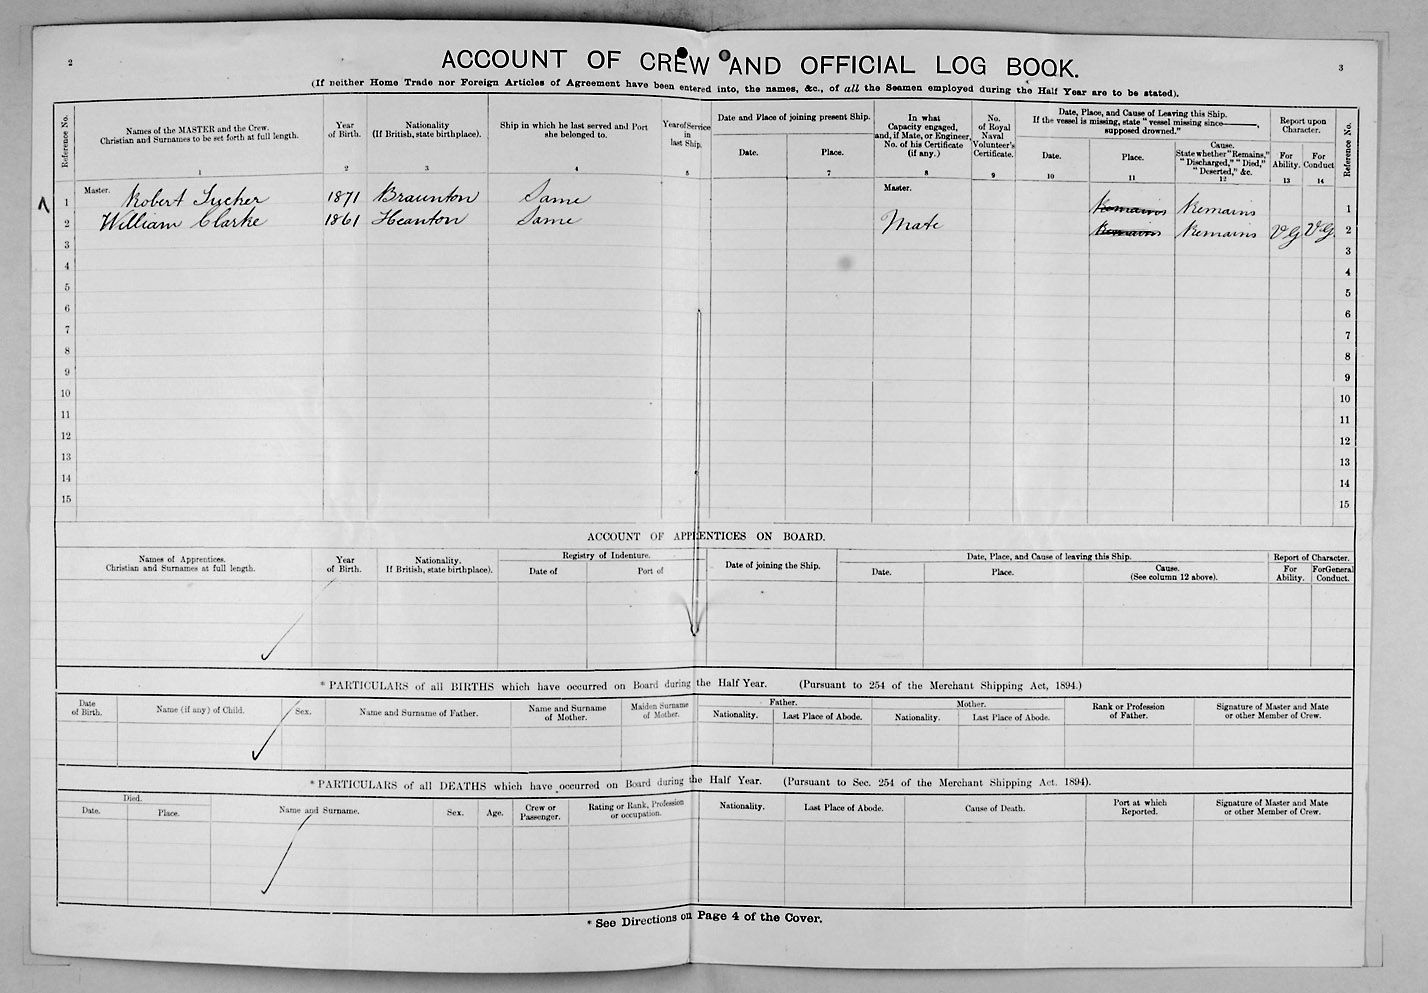 2
3
ACCOUNT OF CREW AND OFFICIAL LOG BOOK.
(If neither Home Trade nor Foreign Articles of Agreement have been entered into, the names, &c., of all the Seamen employed during the Half Year are to be stated).
Reference No.
Names of the MASTER and the Crew. Christian and Surnames to be set forth at full length.
Year of Birth.
Nationality (If British, state birthplace).
Ship in which he last served and Port she belonged to.
Year of Service in last Ship.
Date and Place of joining present Ship.
Date.
Place.
In what Capacity engaged, and, if Mate, or Engineer, No. of his Certificate (if any.)
No. of Royal Naval Volunteer's Certificate.
Date, Place, and Cause of Leaving this Ship.
If the vessel is missing, state "vessel missing since———, supposed drowned."
Date.
Place.
Cause. State whether "Remains," "Discharged," "Died," "Deserted," &c.
Report upon Character.
For Ability.
For Conduct
Reference No.
1 2 3 4 5 7 8 9 10 11 12 13 14
1 Master. Robert Tucker 1871 Braunton Same Master. Remains Remains 1
2 William Clarke 1861 Heanton Same Mate Remains Remains V G V G. 2
3 3
4 4
5 5
6 6
7 7
8 8
9 9
10 10
11 11
12 12
13 13
14 14
15 15
ACCOUNT OF APPRENTICES ON BOARD.
Names of Apprentices. Christian and Surnames at full length.
Year of Birth.
Nationality. If British, state birthplace).
Registry of Indenture.
Date of
Port of
Date of joining the Ship.
Date, Place, and Cause of leaving this Ship.
Date.
Place.
Cause. (See column 12 above).
Report of Character.
For Ability.
For General Conduct.
* PARTICULARS of all BIRTHS which have occurred on Board during the Half Year. (Pursuant to 254 of the Merchant Shipping Act, 1894.)
Date of Birth.
Name (if any) of Child.
Sex.
Name and Surname of Father.
Name and Surname of Mother.
Maiden Surname of Mother.
Father.
Nationality.
Last Place of Abode.
Mother.
Nationality.
Last Place of Abode.
Rank or Profession of Father.
Signature of Master and Mate or other Member of Crew.
* PARTICULARS of all DEATHS which have occurred on Board during the Half Year. (Pursuant to Sec. 254 of the Merchant Shipping Act. 1894).
Died.
Date.
Place.
Name and Surname.
Sex.
Age.
Crew or Passenger.
Rating or Rank, Profession or occupation.
Nationality.
Last Place of Abode.
Cause of Death.
Port at which Reported.
Signature of Master and Mate or other Member of Crew.
* See Directions on Page 4 of the Cover.